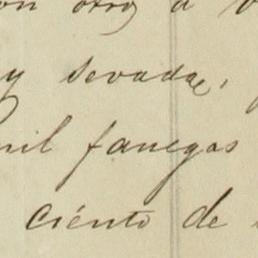 on otro a
y sevada,
mil fanegas
ciento de